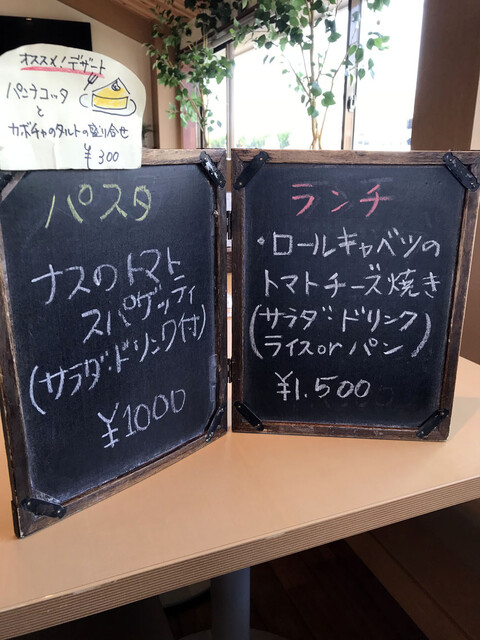 オススメ!デザート
パンナコッタ
と
カボチャのタルトの盛り合せ
¥300
パスタ
ナスのトマト
スパゲッティ
(サラダ・ドリンク付)
¥1000
ランチ
・ロールキャベツの
トマトチーズ焼き
(サラダ・ドリンク
ライスorパン)
¥1.500